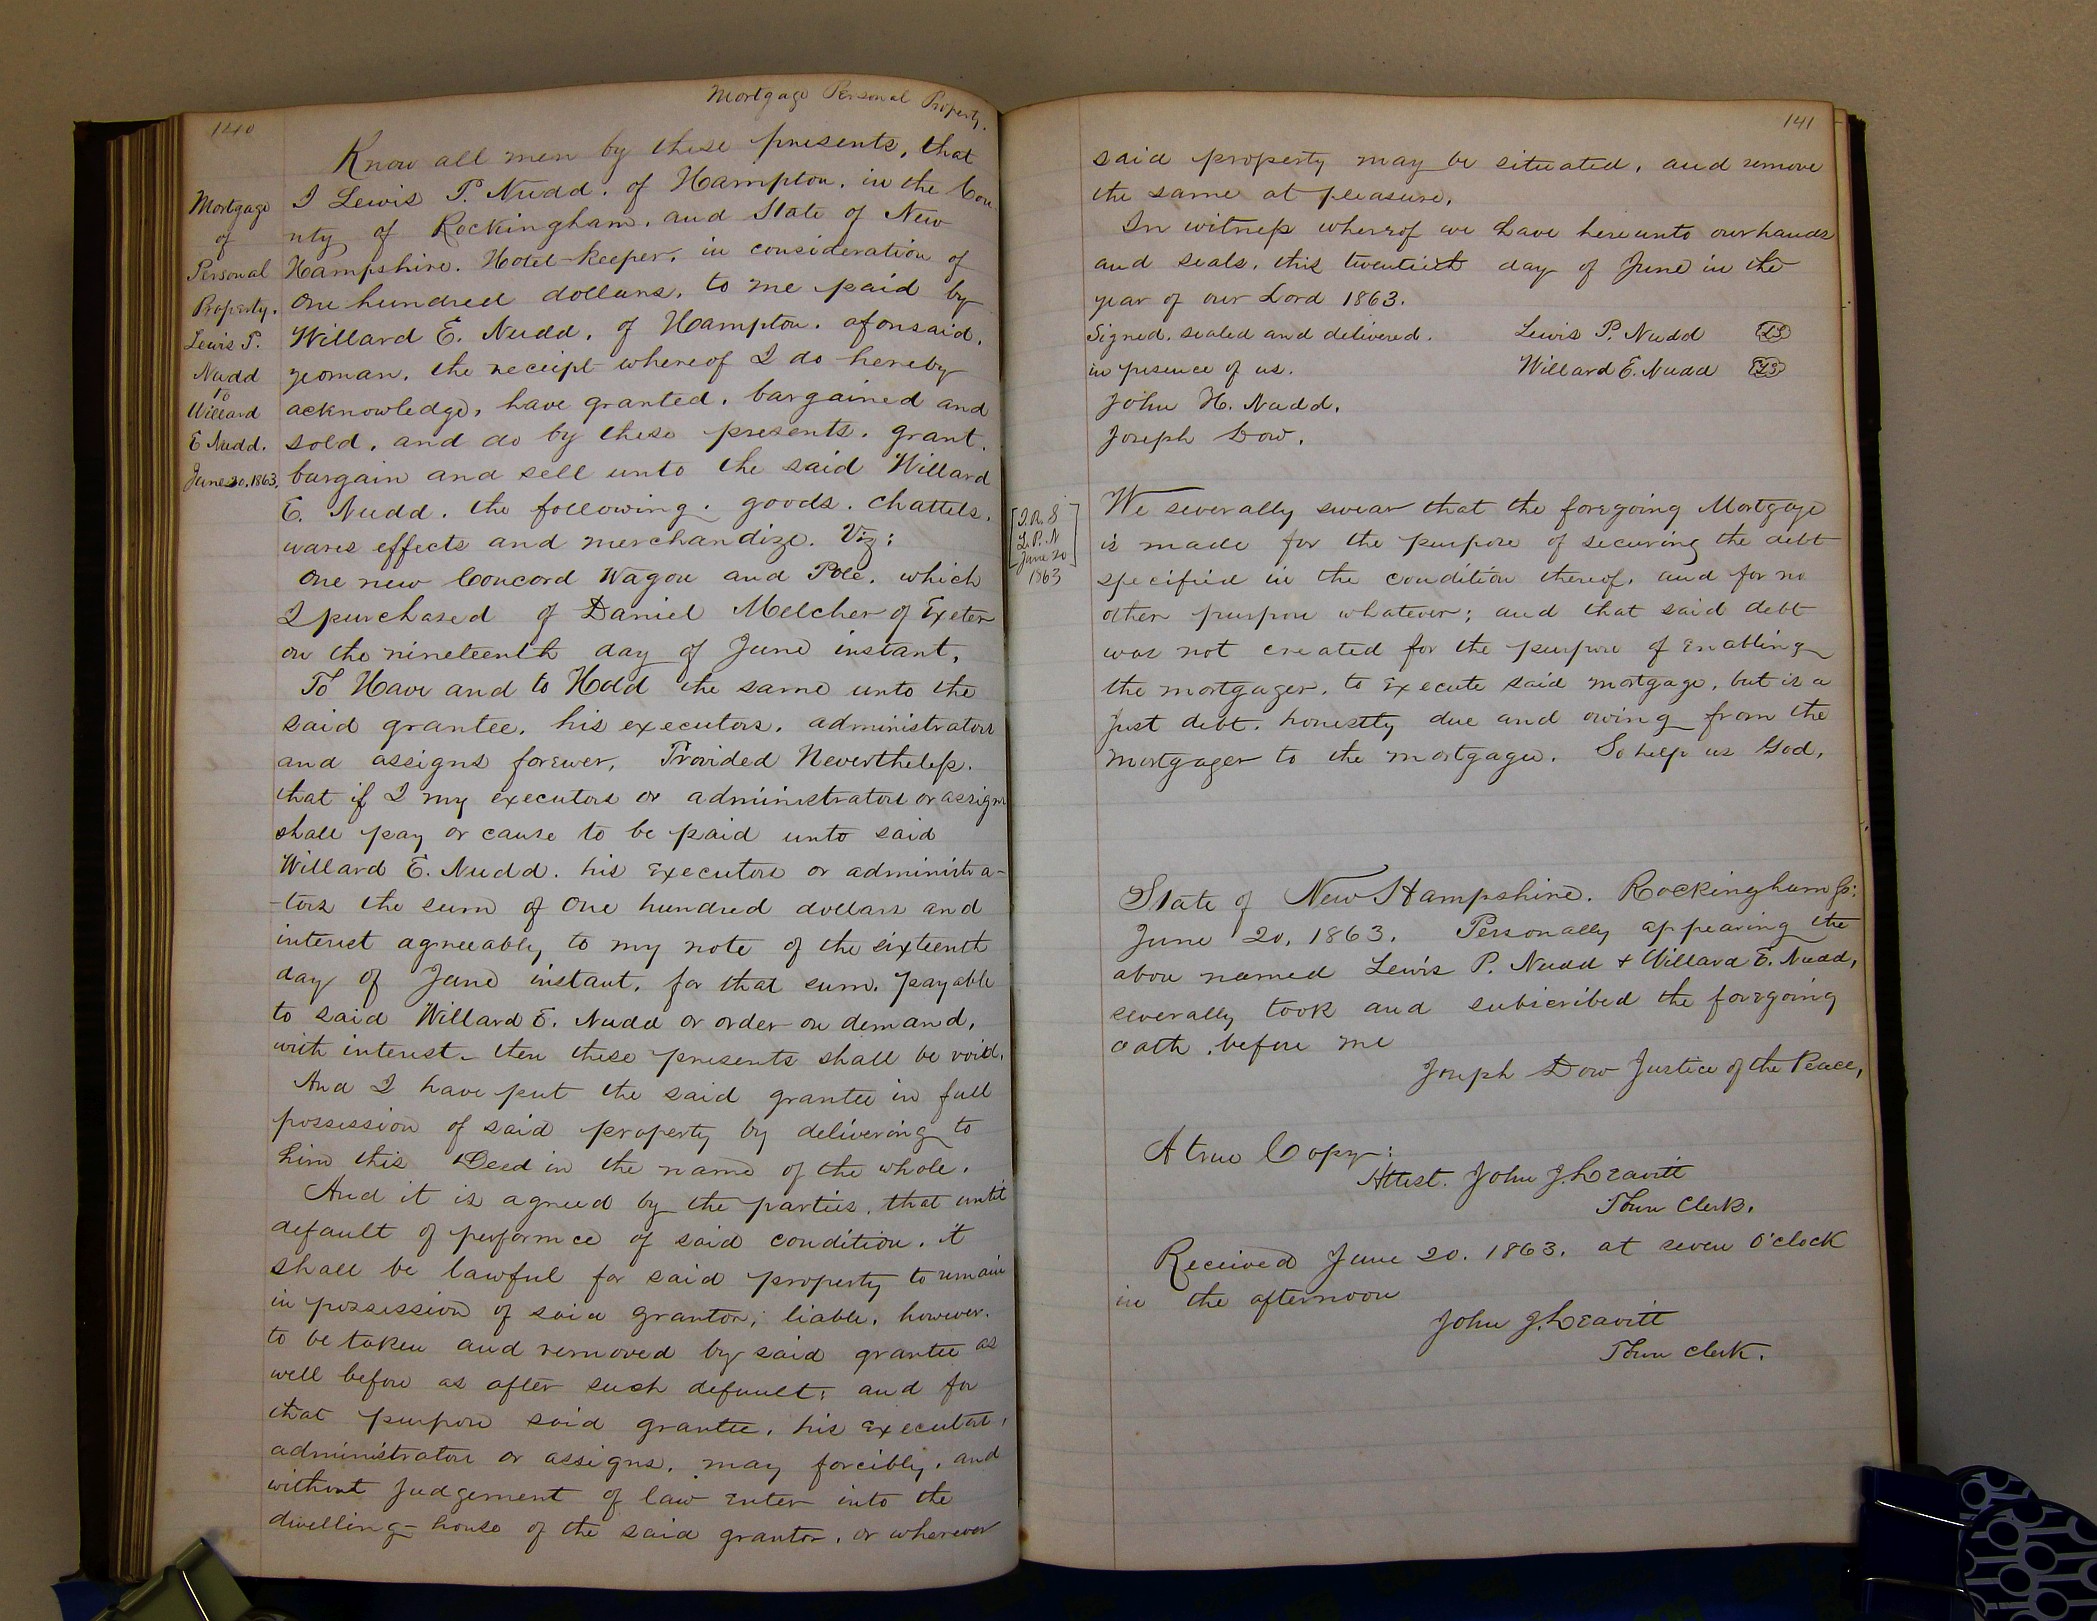 Mortgage Personal Property.
140
Know all men by these presents, that
I Lewis P. Nudd. of Hampton. in the Cou
nty of Rockingham. and State of New
Hampshire. Hotel-keeper, in consideration of
One hundred dollars, to me paid by
Willard E. Nudd, of Hampton. aforesaid,
yeoman, the receipt whereof I do hereby
acknowledge, have granted, bargained and
sold, and do by these presents, grant,
bargain and sell unto the said Willard
E. Nudd, the following. goods. chattels,
wares effects and merchandize. Viz:
One new Concord Wagon and Pole, which
I purchased of Daniel Melcher of Exeter
on the nineteenth day of June instant,
To Have and to Hold the same unto the
said grantee, his executors, administrators
and assigns forever, Provided Nevertheless.
that if I my executors or administrators or assigns
shall pay or cause to be paid unto said
Willard E. Nudd. his Executors or administra-
-tors the sum of One hundred dollars and
interest agreeably to my note of the sixteenth
day of June instant, for that sum, payable
to said Willard E. Nudd or order on demand,
with interest, then these presents shall be void.
And I have put the said grantee in full
possession of said property by delivering to
him this Deed in the name of the whole.
And it is agreed by the parties, that until
default of performce of said condition, it
shall be lawful for said property to remain
in possession of said grantor; liable, however.
to be taken and removed by said grantee as
well before as after such default; and for
that purpose said grantee, his Executors,
administrators or assigns, may forcibly, and
without Judgement of law enter into the
dwelling-house of the said grantor, or wherever
Mortgage
of
Personal
Property.
Lewis P.
Nudd
to
Willard
E Nudd.
June 20, 1863.
141
said property may be situated, and remove
the same at pleasure.
In witness whereof we have hereunto our hands
and seals, this twentieth day of June in the
year of our Lord 1863.
Signed, sealed and delivered. Lewis P. Nudd LS
in presence of us. Willard E. Nudd LS
John H. Nudd.
Joseph Dow.
L. P. N
June 20
1863
We severally swear that the foregoing Mortgage
is made for the purpose of securing the debt
specified in the condition thereof, and for no
other purpose whatever; and that said debt
was not created for the purpose of enabling
the mortgager, to execute said mortgage, but is a
Just debt, honestly due and owing from the
mortgager to the mortgagee. So help us God.
State of New Hampshire. Rockingham Co:
June 20, 1863. Personally appearing the
above named Lewis P. Nudd & Willard E. Nudd,
severally took and subscribed the foregoing
oath, before me
Joseph Dow Justice of the Peace,
A true Copy:
Attest. John J. Leavitt
Town Clerk.
Received June 20. 1863. at seven O'clock
in the afternoon
John J. Leavitt
Town Clerk.